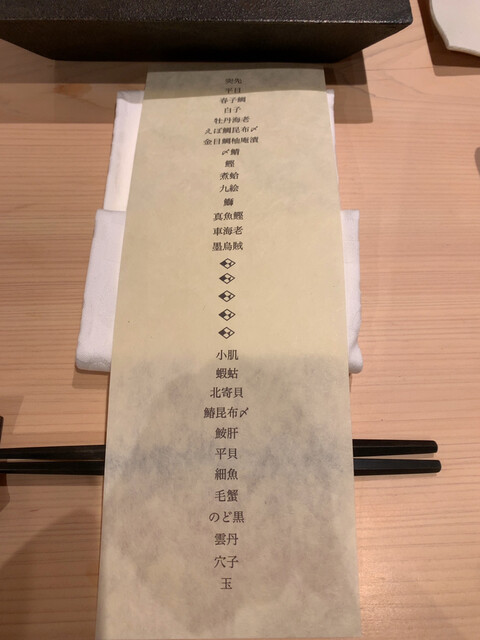 平目
春子鯛
白子
牡丹海老
えぼ鯛昆布〆
金目鯛柚庵漬
〆鯖
鰹
煮蛤
九絵
鰤
真魚鰹
車海老
墨烏賊
小肌
蝦蛄
北寄貝
鰆昆布〆
鮟肝
平貝
細魚
毛蟹
のど黒
雲丹
穴子
玉